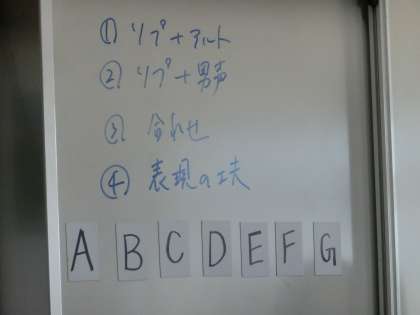 ① ソプ+アルト
② ソプ+男声
③ 合わせ
④ 表現の工夫
A B C D E F G